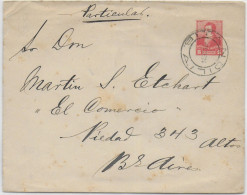 Particular.
Sr Don
Martin S. Etchart
"El Comercio"
Piedad 343
Altos
Bs Aires